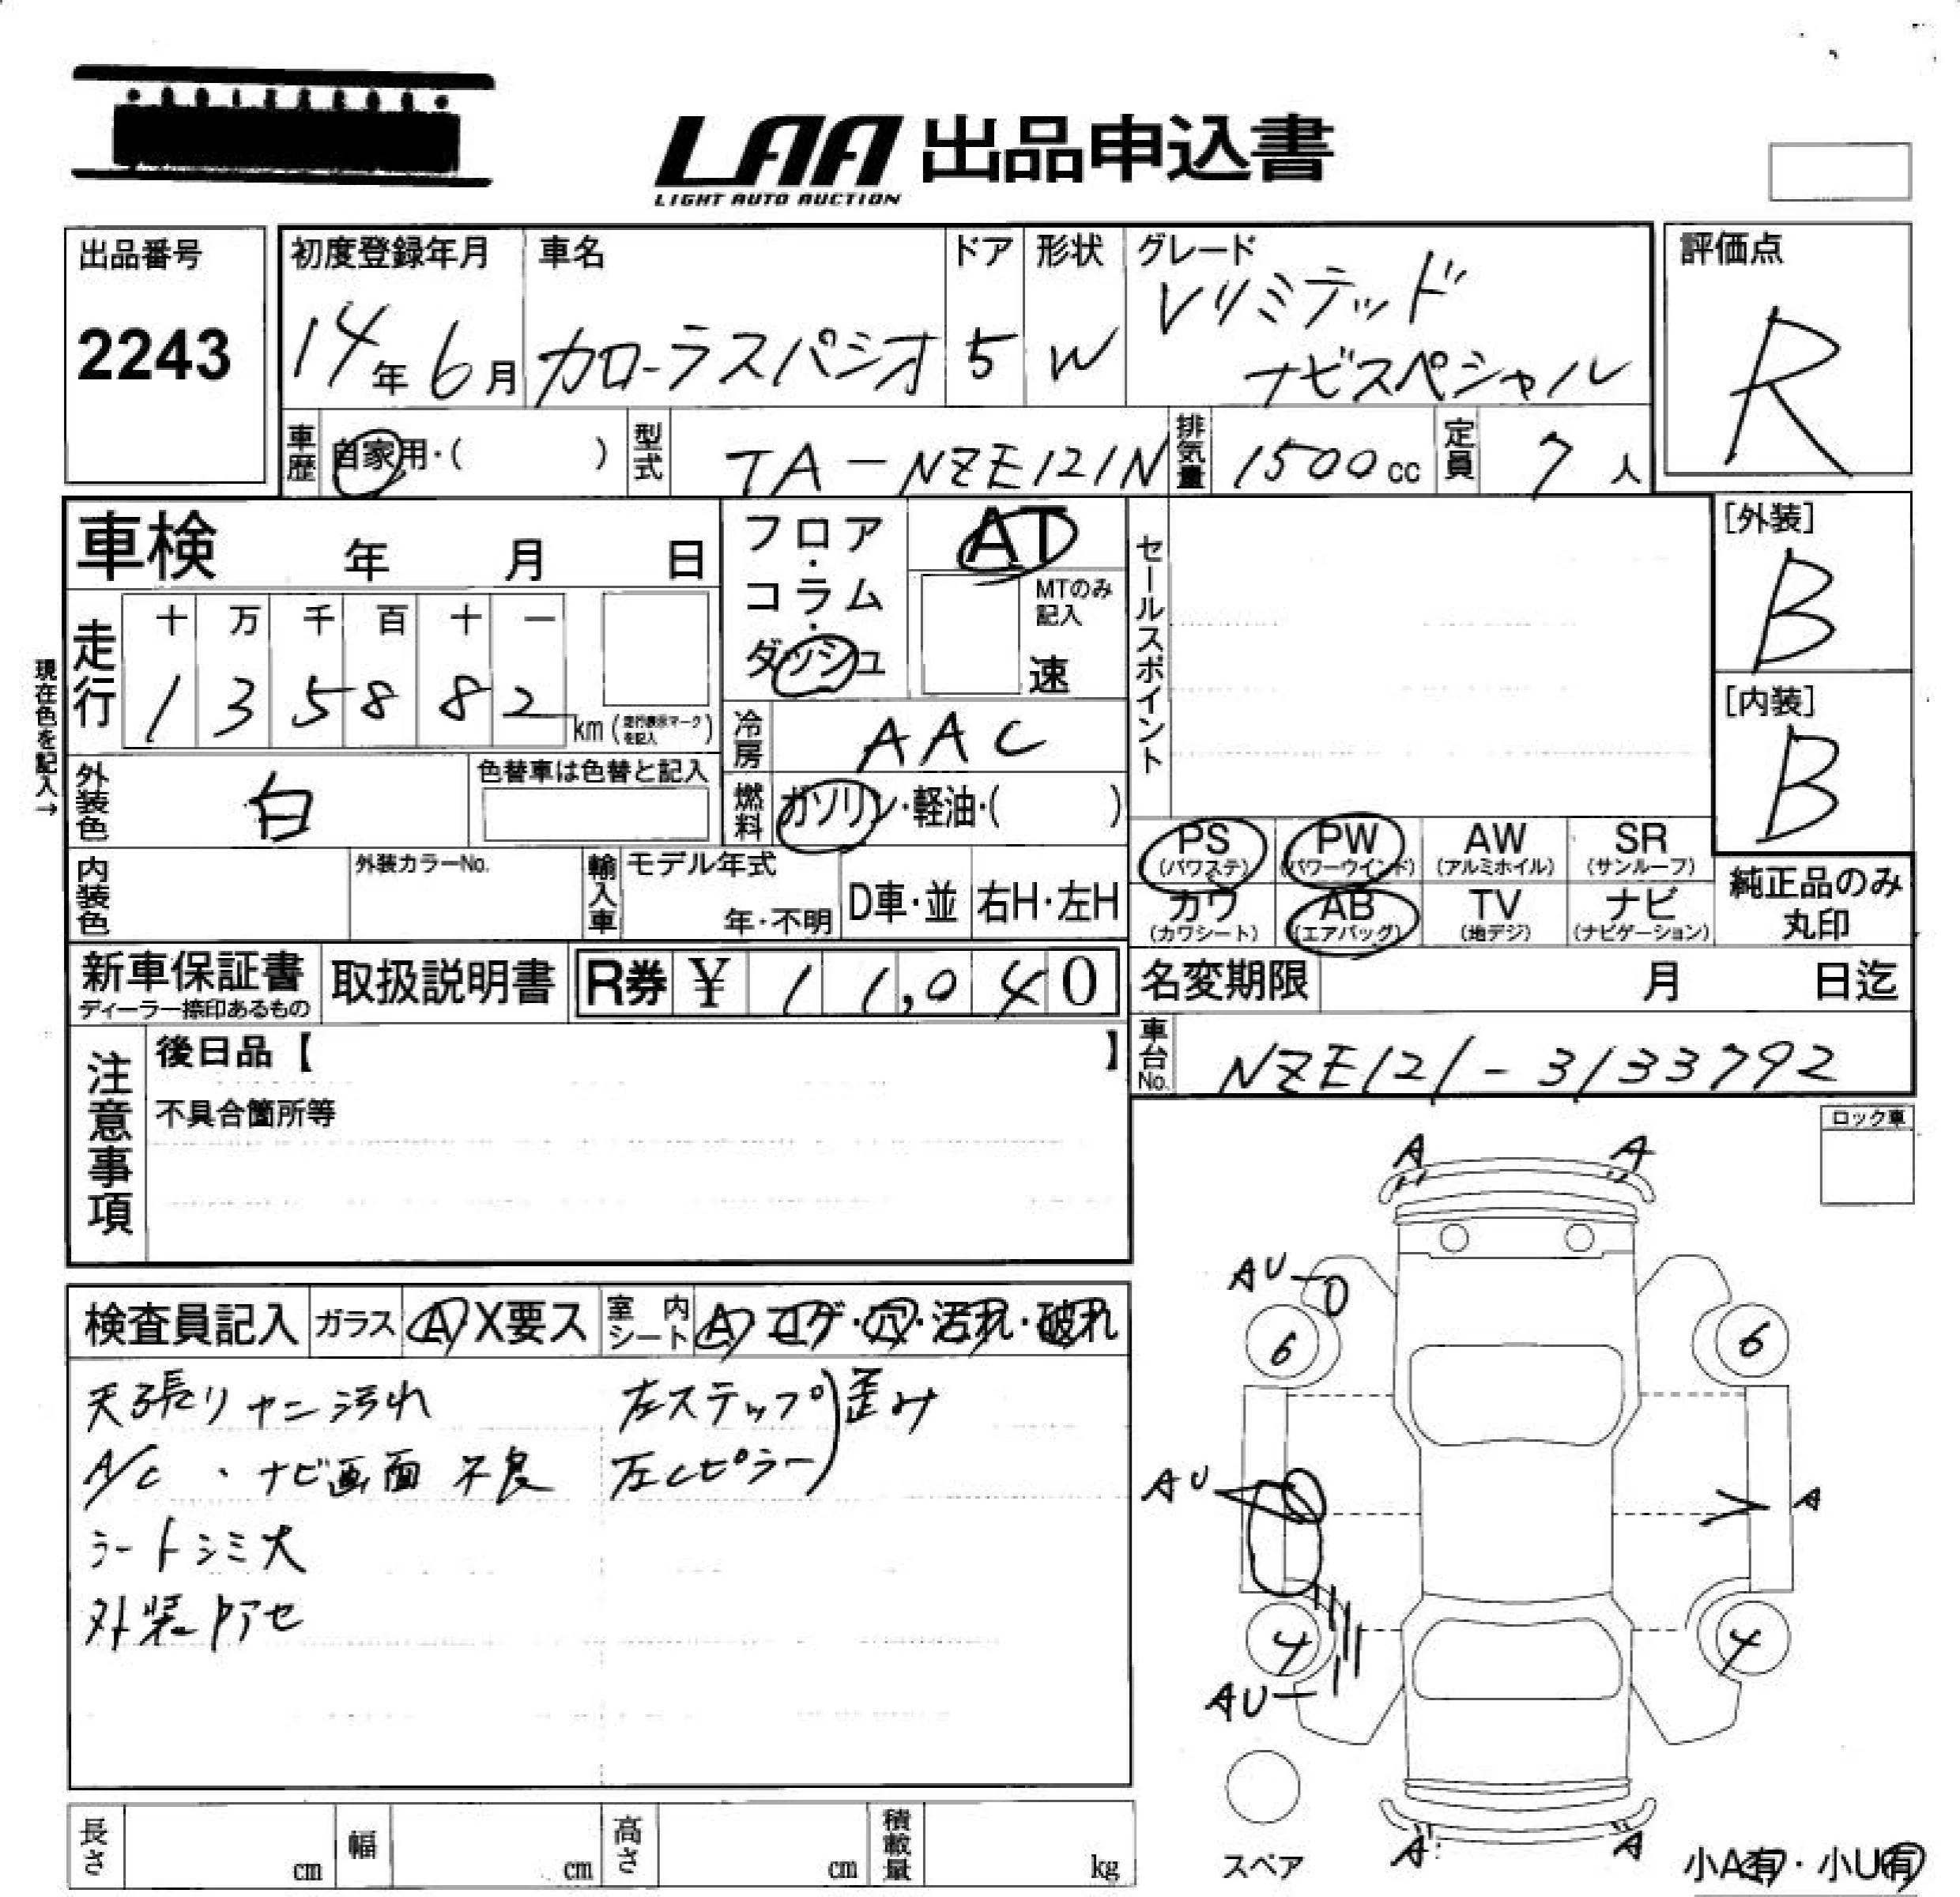 LAA 出品申込書
LIGHT AUTO AUCTION
出品番号
2243
初度登録年月
14年6月
車名
カローラスパシオ
ドア
5
形状
W
グレード
Vリミテッド
ナビスペシャル
評価点
R
車歴
自家用・( )
型式
TA-NZE121N
排気量
1500cc
定員
7人
車検 年 月 日
フロア・コラム・ダッシュ
AT
MTのみ
記入
速
セールスポイント
[外装]
B
[内装]
B
現在色を記入→
走行
十 万 千 百 十 一
1 3 5 8 8 2 km (走行表示マークを記入)
冷房
AAC
外装色
白
色替車は色替と記入
燃料
ガソリン・軽油・( )
内装色
外装カラーNo.
輸入車
モデル年式
年・不明
D車・並
右H・左H
PS (パワステ)
PW (パワーウインド)
AW (アルミホイル)
SR (サンルーフ)
カワ (カワシート)
AB (エアバッグ)
TV (地デジ)
ナビ (ナビゲーション)
純正品のみ
丸印
新車保証書
ディーラー捺印あるもの
取扱説明書
R券 ¥ 11,040
名変期限 月 日迄
車台No.
NZE121-3133792
注意事項
後日品【 】
不具合箇所等
ロック車
検査員記入
ガラス
A X要ス
室内シート
A コゲ・穴・汚れ・破れ
天張りヤニ汚れ
A/C ・ナビ画面 不良
シートシミ大
外装アセ
左ステップ
左Cピラー
歪み
A A
AU
6 6
AU
A
4 4
AU
A A
スペア
小A有・小U有
長さ cm
幅 cm
高さ cm
積載量 kg